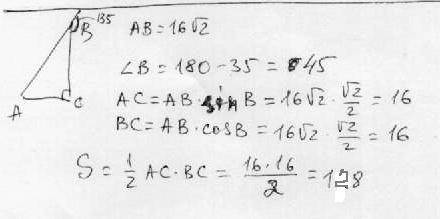 B 135
A C
AB = 16√2
∠B = 180 - 35 = 45
AC = AB · sin B = 16√2 · √2/2 = 16
BC = AB · cos B = 16√2 · √2/2 = 16
S = 1/2 AC · BC = 16·16/2 = 128